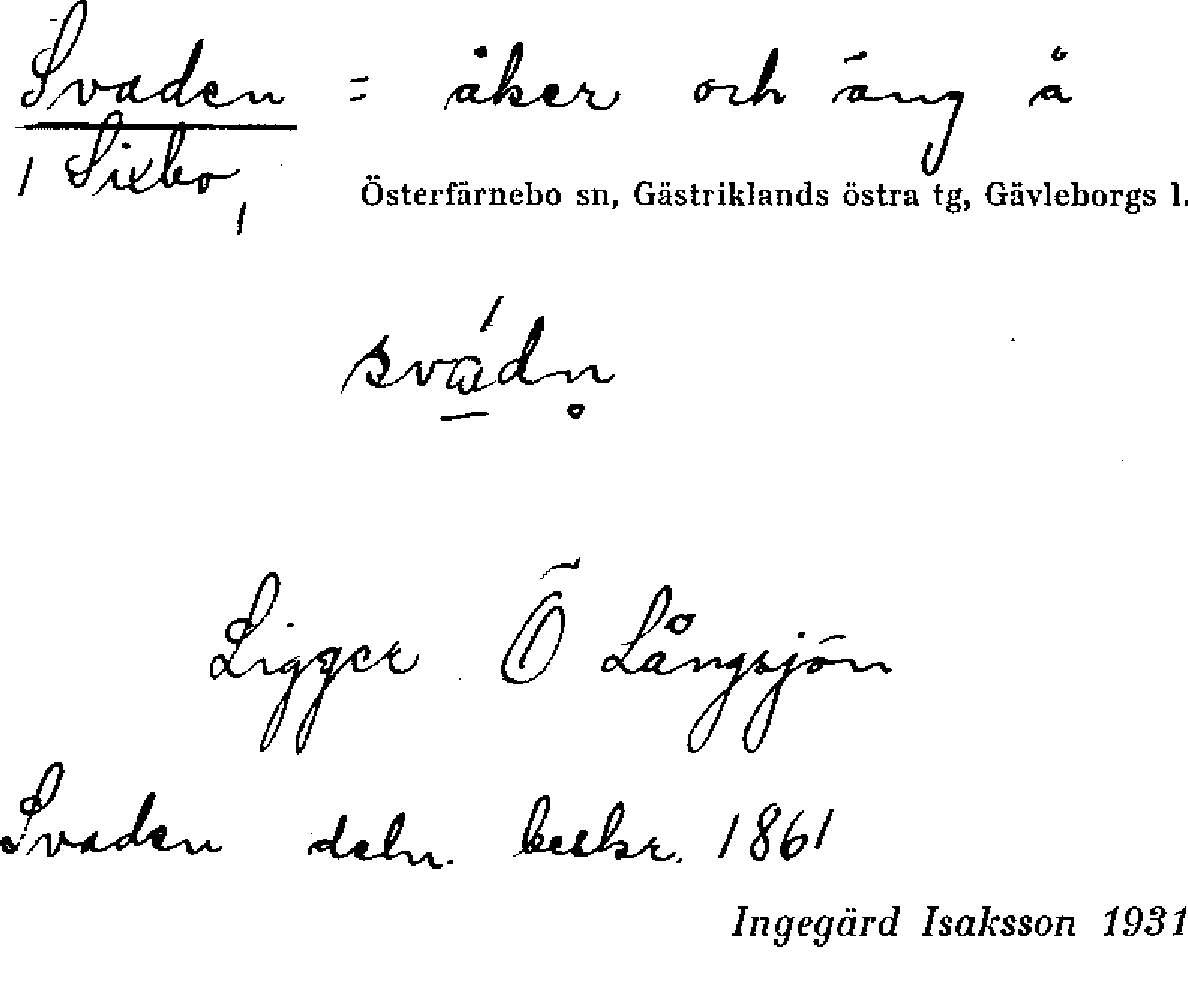 Svaden = åker och äng å
/ Sixbo /
Österfärnebo sn, Gästriklands östra tg, Gävleborgs l.
svádn̥
Ligger Ö Långsjön
Svaden deln. beskr. 1861
Ingegärd Isaksson 1931